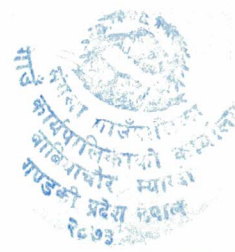 गाउँपालिका
गाउँ कार्यपालिकाको कार्यालय
बाबियाचौर म्याग्दी
गण्डकी प्रदेश नेपाल
२०७३